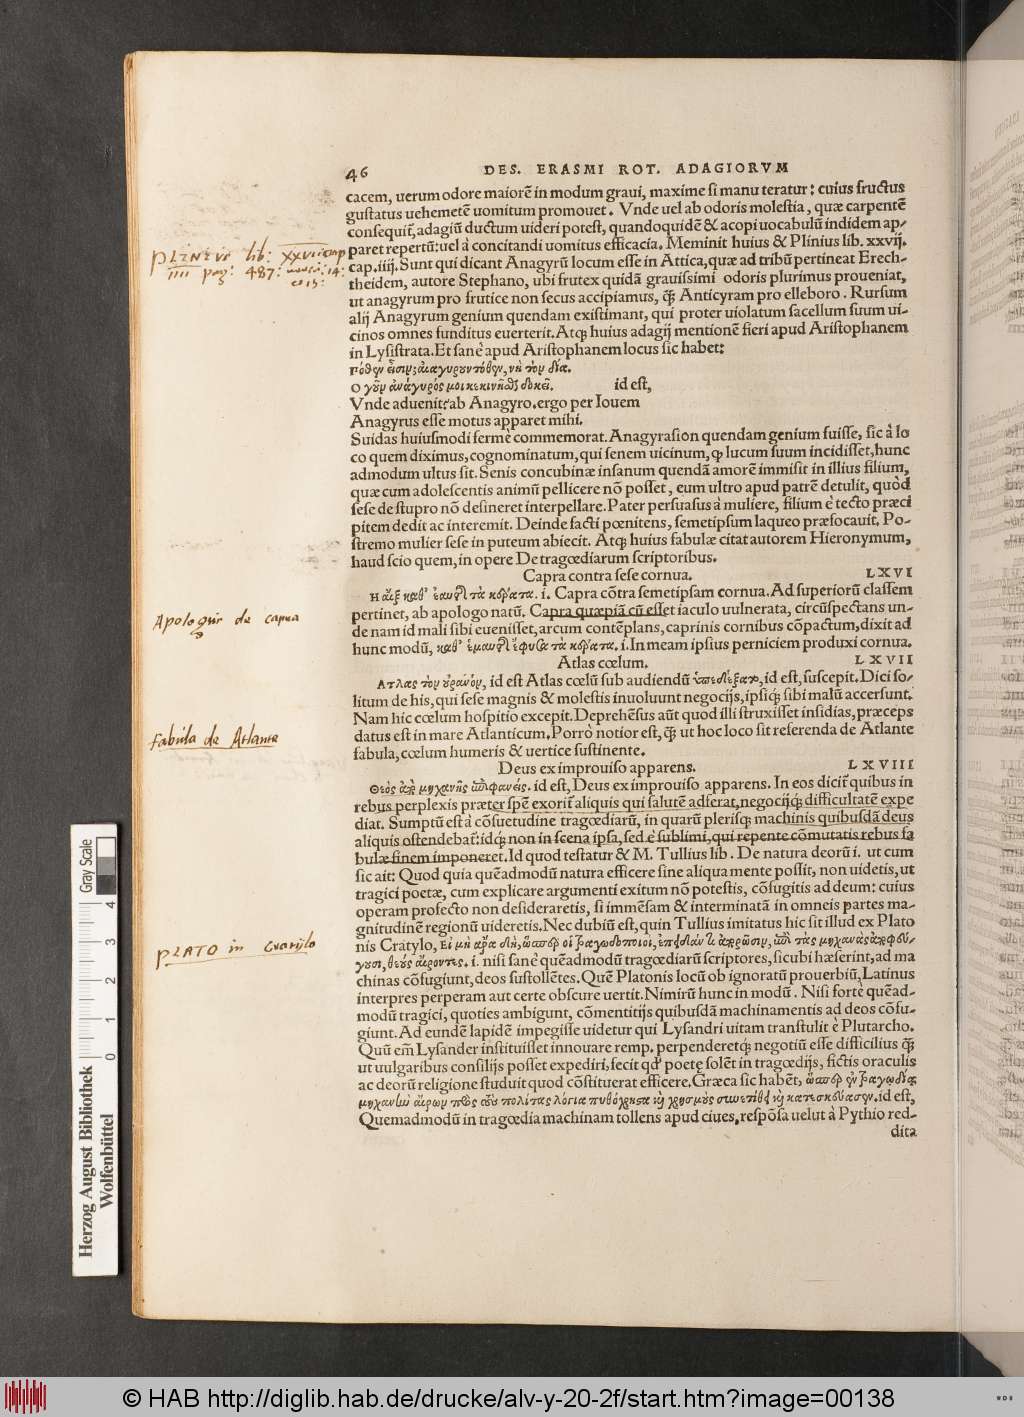 46 DES. ERASMI ROT. ADAGIORVM
cacem, uerum odore maiorē in modum graui, maxime si manu teratur: cuius fructus
gustatus uehemetē uomitum promouet. Vnde uel ab odoris molestia, quæ carpentē
consequit̃, adagiū ductum uideri potest, quandoquidē & acopi uocabulū indidem ap-
paret repertū: uel à concitandi uomitus efficacia. Meminit huius & Plinius lib. xxvij.
cap. iiij. Sunt qui dicant Anagyrū locum esse in Attica, quæ ad tribū pertineat Erech-
theidem, autore Stephano, ubi frutex quidā grauissimi odoris plurimus proueniat,
ut anagyrum pro frutice non secus accipiamus, q̃ Anticyram pro elleboro. Rursum
alij Anagyrum genium quendam existimant, qui proter uiolatum sacellum suum ui-
cinos omnes funditus euerterit. Atq; huius adagij mentionē fieri apud Aristophanem
in Lysistrata. Et sanè apud Aristophanem locus sic habet:
Πόθεν εἰσιν; ἀναγυρουντόθεν, νὴ τὸν δία.
Ὁ γοῦν ἀνάγυρός μοι κεκινῆσθαι δοκεῖ. id est,
Vnde aduenit? ab Anagyro. ergo per Iouem
Anagyrus esse motus apparet mihi.
Suidas huiusmodi fermè commemorat. Anagyrasion quendam genium fuisse, sic à lo
co quem diximus, cognominatum, qui senem uicinum, q lucum suum incidisset, hunc
admodum ultus sit. Senis concubinæ insanum quendā amorē immisit in illius filium,
quæ cum adolescentis animū pellicere nō posset, eum ultro apud patrē detulit, quòd
sese de stupro nō desineret interpellare. Pater persuasus à muliere, filium è tecto præci
pitem dedit ac interemit. Deinde facti pœnitens, semetipsum laqueo præfocauit. Po-
stremo mulier sese in puteum abiecit. Atq; huius fabulæ citat autorem Hieronymum,
haud scio quem, in opere De tragœdiarum scriptoribus.
Capra contra sese cornua. LXVI
Ἡ αἲξ καθ' ἑαυτῆς τὰ κέρατα. i. Capra cōtra semetipsam cornua. Ad superiorū classem
pertinet, ab apologo natū. Capra quæpiā cū esset iaculo uulnerata, circūspectans un-
de nam id mali sibi euenisset, arcum contēplans, caprinis cornibus cōpactum, dixit ad
hunc modū, καθ' ἐμαυτῆς ἔφυσα τὰ κέρατα. i. In meam ipsius perniciem produxi cornua.
Atlas cœlum. LXVII
Ἄτλας τὸν οὐρανόν, id est Atlas cœlū sub audiendū ὑπεδέξατο, id est, suscepit. Dici so-
litum de his, qui sese magnis & molestis inuoluunt negocijs, ipsiq; sibi malū accersunt.
Nam hic cœlum hospitio excepit. Deprehēsus aūt quod illi struxisset insidias, præceps
datus est in mare Atlanticum. Porrò notior est, q̃ ut hoc loco sit referenda de Atlante
fabula, cœlum humeris & uertice sustinente.
Deus ex improuiso apparens. LXVIII
Θεὸς ἀπὸ μηχανῆς ἐπιφανείς. id est, Deus ex improuiso apparens. In eos dicit̃ quibus in
rebus perplexis præter spē exorit̃ aliquis qui salutē adferat, negocijq; difficultatē expe
diat. Sumptū est à cōsuetudine tragœdiarū, in quarū plerisq; machinis quibusdā deus
aliquis ostendebat̃: idq; non in scena ipsa, sed è sublimi, qui repente cōmutatis rebus fa
bulæ finem imponeret. Id quod testatur & M. Tullius lib. De natura deorū i. ut cum
sic ait: Quod quia quēadmodū natura efficere sine aliqua mente possit, non uidetis, ut
tragici poetæ, cum explicare argumenti exitum nō potestis, cōfugitis ad deum: cuius
operam profecto non desideraretis, si immēsam & interminatā in omneis partes ma-
gnitudinē regionū uideretis. Nec dubiū est, quin Tullius imitatus hic sit illud ex Plato
nis Cratylo, Εἰ μὴ ἄρα δὴ, ὥσπερ οἱ τραγωδοποιοι, ἐπειδάν τι ἀπορῶσιν, ἐπὶ τὰς μηχανὰς ἀποφεύ-
γουσι, θεοὺς αἴροντες. i. nisi sanè quēadmodū tragœdiarū scriptores, sicubi hæserint, ad ma
chinas cōfugiunt, deos sustollētes. Quē Platonis locū ob ignoratū prouerbiū, Latinus
interpres perperam aut certe obscure uertit. Nimirū hunc in modū. Nisi fortè quēad-
modū tragici, quoties ambigunt, cōmentitijs quibusdā machinamentis ad deos cōfu-
giunt. Ad eundē lapidē impegisse uidetur qui Lysandri uitam transtulit è Plutarcho.
Quū em̄ Lysander instituisset innouare remp. perpenderetq; negotiū esse difficilius q̃
ut uulgaribus consilijs posset expediri, fecit qd' poetę solēt in tragœdijs, fictis oraculis
ac deorū religione studuit quod cōstituerat efficere. Græca sic habēt, ὥσπερ ἐν τραγῳδίᾳ
μηχανὴν αἴρων πρὸς τοὺς πολίτας λόγια πυθόχρηστα καὶ χρησμοὺς συνετίθει καὶ κατεσκεύασεν. id est,
Quemadmodū in tragœdia machinam tollens apud ciues, respōsa uelut à Pythio red-
dita
PLINIVS lib: XXVII cap
IIII pag: 487:
Apologus de capra
Fabula de Atlante
PLATO in Cratylo
Herzog August Bibliothek
Wolfenbüttel
Gray Scale
0 1 2 3 4
© HAB http://diglib.hab.de/drucke/alv-y-20-2f/start.htm?image=00138